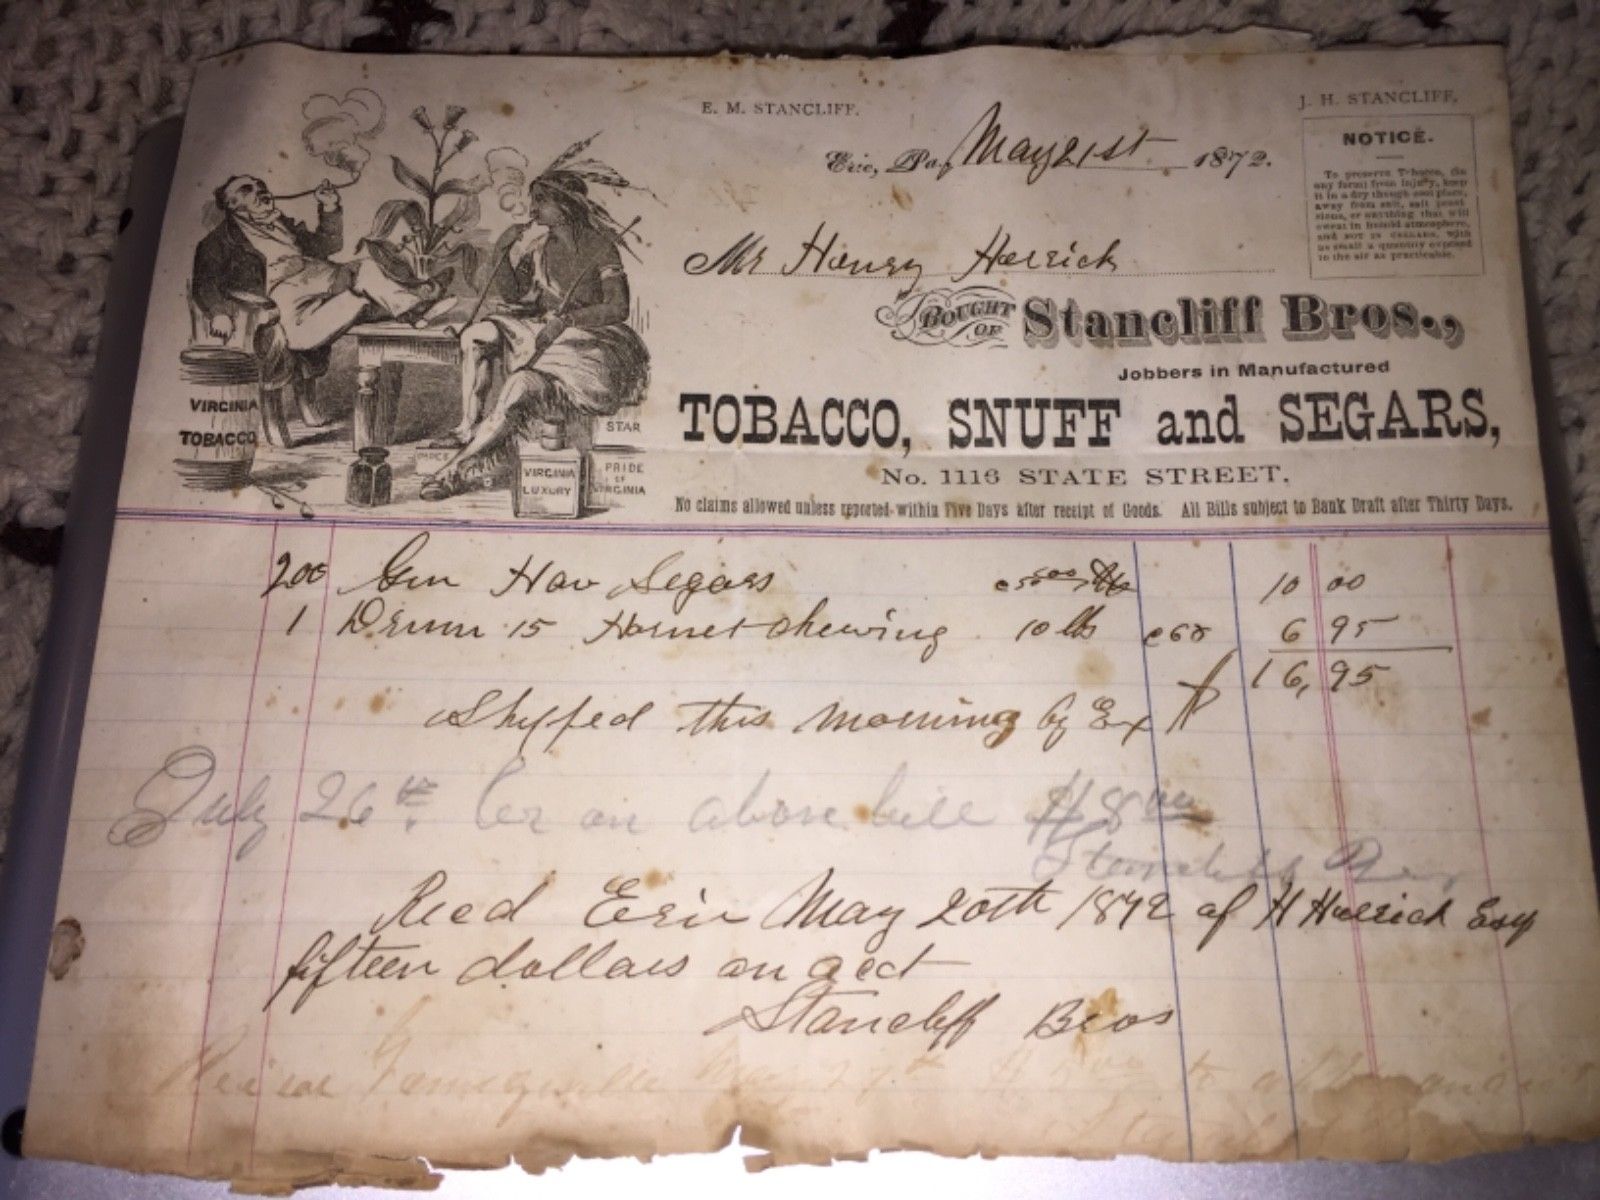 E. M. STANCLIFF.
J. H. STANCLIFF.
Erie, Pa, May 21st 1872.
NOTICE.
To preserve Tobacco, (in
any form) from injury, keep
it in a dry though cool place,
away from salt, salt
or anything that will
sweat in humid atmosphere,
and NOT IN CELLARS, with
as small a quantity exposed
to the air as practicable.
Mr Henry Herrick
BOUGHT OF Stancliff Bros.,
Jobbers in Manufactured
TOBACCO, SNUFF and SEGARS,
No. 1116 STATE STREET.
No claims allowed unless reported within Five Days after receipt of Goods. All Bills subject to Bank Draft after Thirty Days.
VIRGINIA
TOBACCO
STAR
VIRGINIA
LUXURY
PRIDE
OF
VIRGINIA
200 Gen Hav Segars 10 00
1 Drum 15 Hornet chewing 10 lbs 6 95
$ 16,95
Shipped this morning by Ex
July 26th. Cr on above bill $8 00
Stancliff Bros
Recd Erie May 20th 1872 of H Herrick Esq
fifteen dollars on acct
Stancliff Bros
May 27th